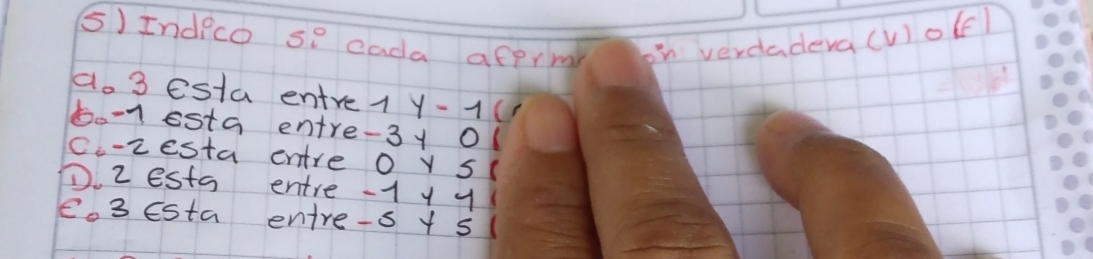 5) Indico si cada verdadera (V) o (F)
a. 3 Esta entre 1 y -1 (
b. -1 esta entre -3 y 0 (
C. -2 esta entre 0 y 5 (
D. 2 esta entre -1 y 4 (
e. 3 Esta entre -5 y 5 (